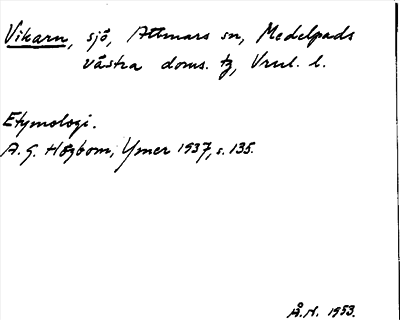 Vikarn, sjö, Attmars sn, Medelpads
västra doms. tg, Vrnl. l.
Etymologi.
A. G. Högbom, Ymer 1937, s. 135.
Å. N. 1953.